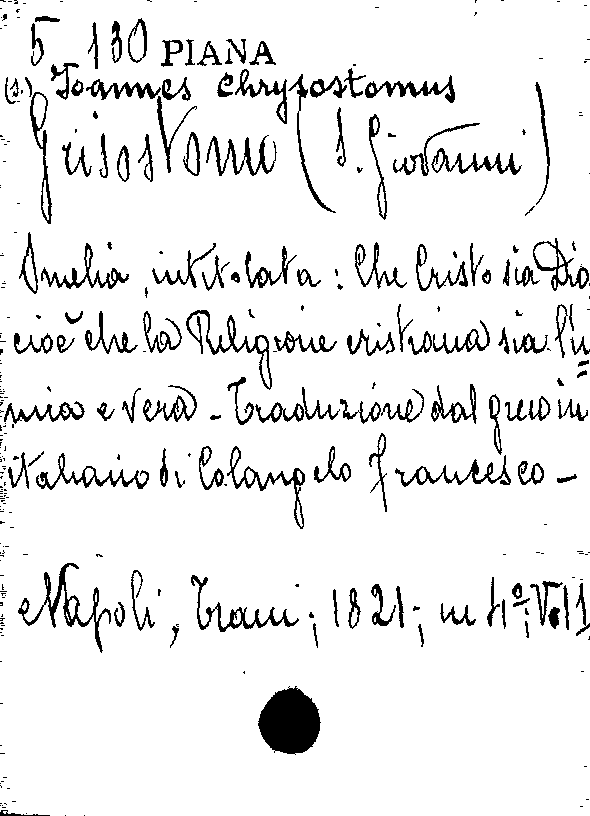 5 130 PIANA
(s.) Joannes Chrysostomus
Grisostomo (S. Giovanni)
Omelia, intitolata: Che Cristo sia Dio
cioè che la Religione cristiana sia l'u=
nica e vera - Traduzione dal greco in
italiano di Colangelo Francesco -
Napoli, Trani; 1821; in 4º; Vol 1